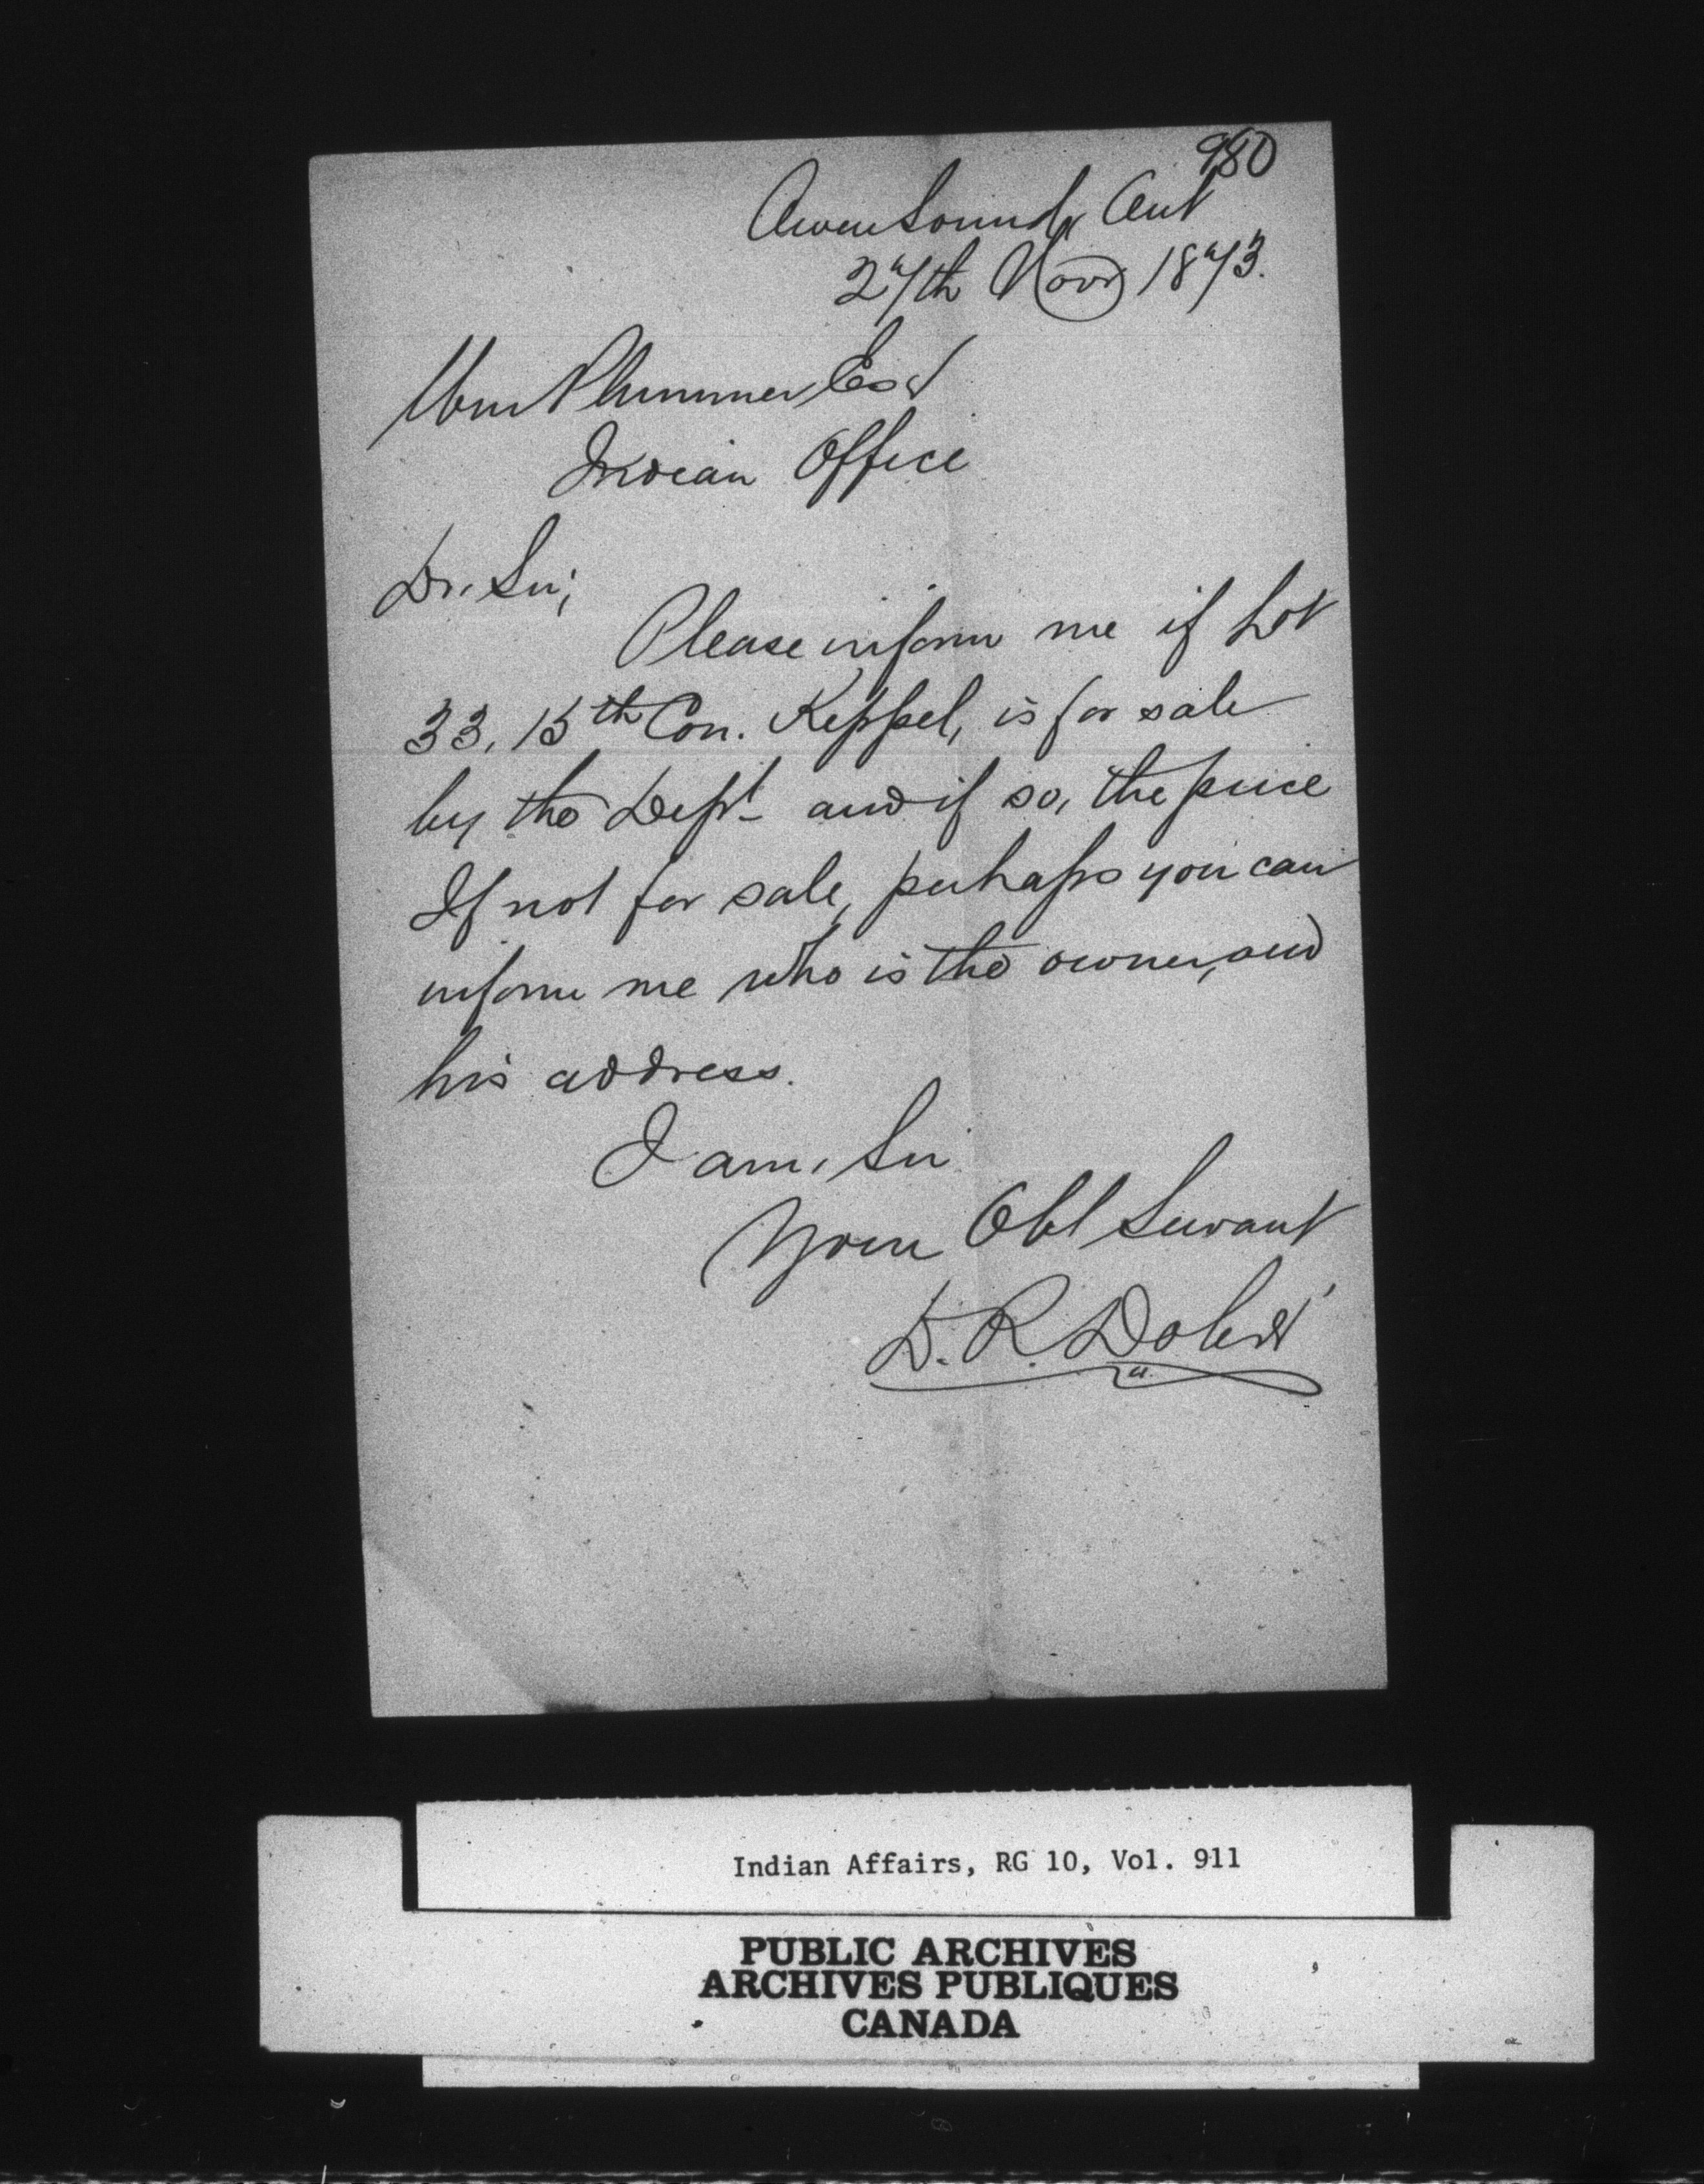 980
Owen Sound, Ont
27th Novr 1873.
Wm Plummer Esq
Indian Office
Dr. Sir;
Please inform me if Lot
33, 15th Con. Keppel, is for sale
by the Dept- and if so, the price
If not for sale, perhaps you can
inform me who is the owner, and
his address.
I am, Sir
Your Obt Servant
D. R. Dobie
Indian Affairs, RG 10, Vol. 911
PUBLIC ARCHIVES
ARCHIVES PUBLIQUES
CANADA